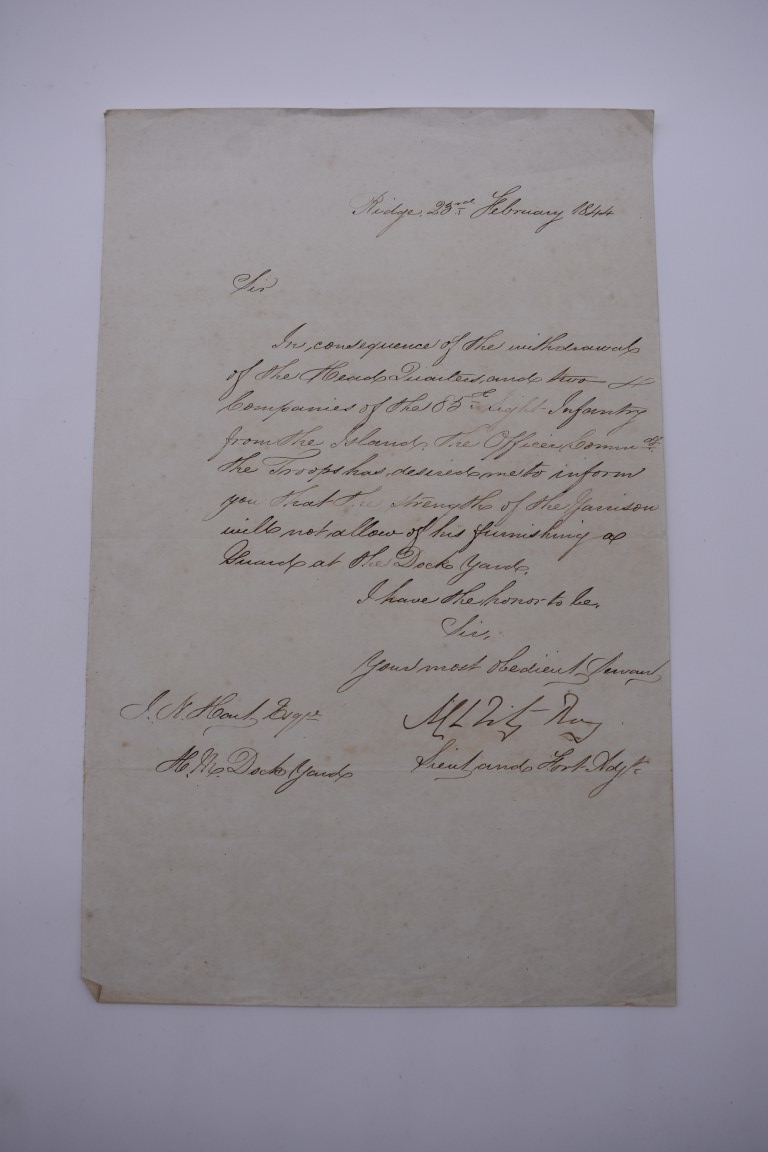 Ridge, 23rd February 1844
Sir
In consequence of the withdrawal
of the Head Quarters, and two
Companies of the 85th Light Infantry
from the Island, the Officer Commdg.
the Troops has desired me to inform
you that the strength of the Garrison
will not allow of his furnishing a
Guard at the Dock Yard.
I have the honor to be,
Sir,
Your most obedient Servant
J. N. Hart Esqre
Fitz Roy
H. M. Dock Yard
Lieut and Fort Adjt.